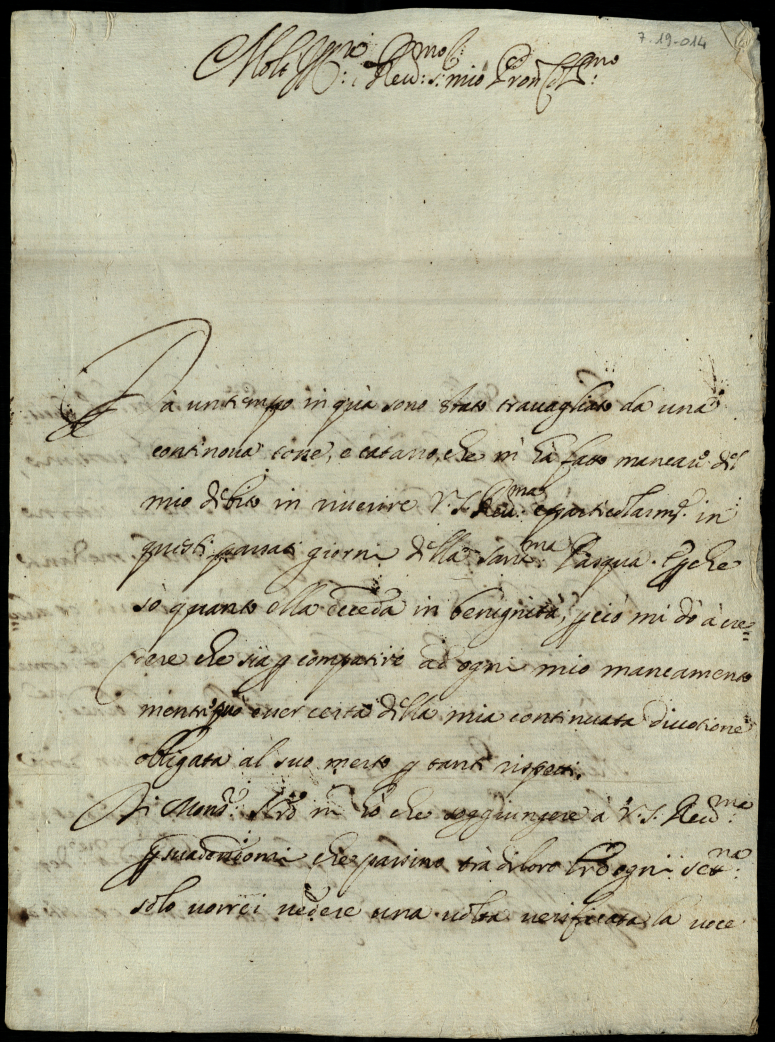 7.19-014
Molt' Ill.re e Rev.mo S.r mio P.ron Col.mo
Da un tempo in quà sono stato travagliato da una
continova tosse, e cataro, che m' hà fatto mancare del
mio debito in riverire V. S. Rev.ma e particolarm.te in
questi passati giorni della Sant.ma Pasqua. E perche
sò quanto ella ecceda in benignità, perciò mi dò à cre=
dere che sia p compatire ad ogni mio mancamento
mentre può esser certa della mia continuata divotione
obligata al suo merto p tanti rispetti.
Di Mons.r N.ro non hò che soggiungere à V. S. Rev.ma
p suadendomi che passino trà di loro l're ogni sett.na
solo vorrei vedere una volta verificata la voce